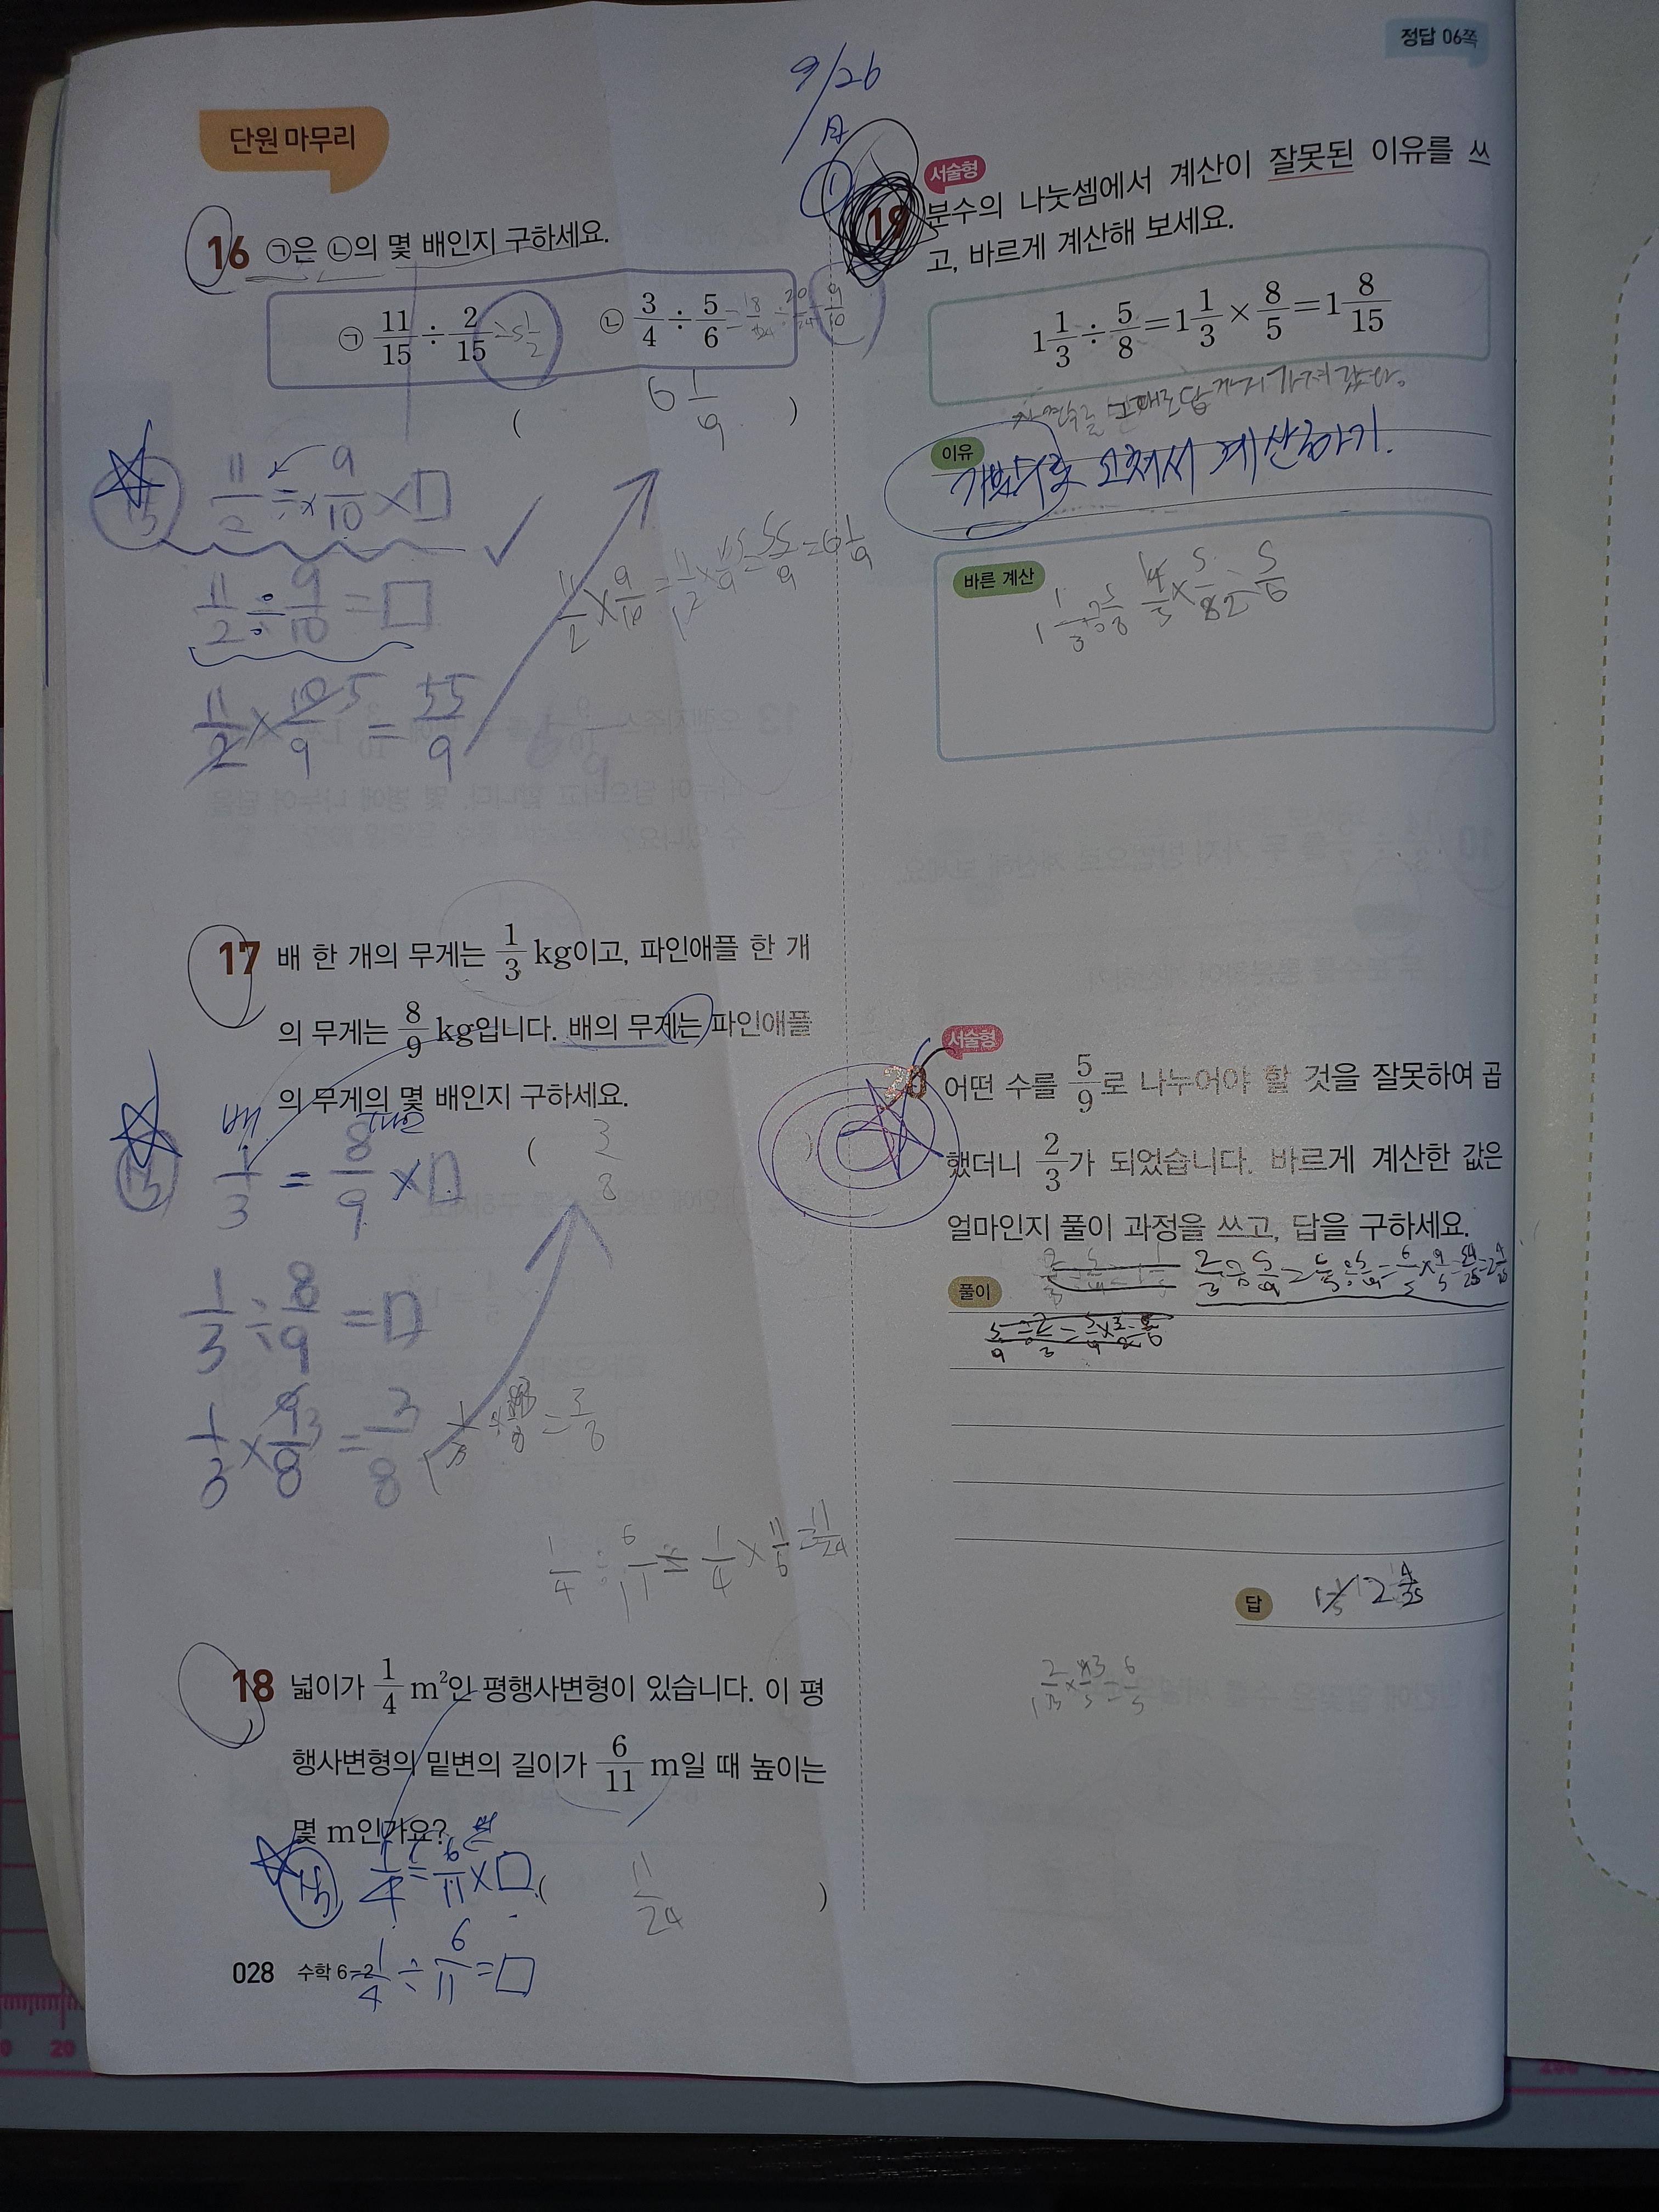 정답 06쪽
9/26
단원 마무리
16 ㉠은 ㉡의 몇 배인지 구하세요.
㉠ 11/15 ÷ 2/15 = 5 1/2 ㉡ 3/4 ÷ 5/6 = 18/24 ÷ 20/24 = 9/10
( 6 1/9 )
11/2 ÷ × 9/10 × □
11/2 ÷ 9/10 = □
11/2 × 10 5/9 = 55/9
17 배 한 개의 무게는 1/3 kg이고, 파인애플 한 개
의 무게는 8/9 kg입니다. 배의 무게는 파인애플
의 무게의 몇 배인지 구하세요.
( 3/8 )
배
1/3 = 8/9 × □
1/3 ÷ 8/9 = □
1/3 × 9 3/8 = 3/8
1/4 ÷ 6/11 = 1/4 × 11/6 = 11/24
18 넓이가 1/4 m²인 평행사변형이 있습니다. 이 평
행사변형의 밑변의 길이가 6/11 m일 때 높이는
몇 m인가요?
식 1/4 = 6/11 × □
( 11/24 )
1/4 ÷ 6/11 = □
028 수학 6-2
서술형
19 분수의 나눗셈에서 계산이 잘못된 이유를 쓰
고, 바르게 계산해 보세요.
1 1/3 ÷ 5/8 = 1 1/3 × 8/5 = 1 8/15
이유
고쳐서 계산하기.
바른 계산
1 1/3 ÷ 5/8 4/3 × 5/8 2 = 5/6
서술형
20 어떤 수를 5/9로 나누어야 할 것을 잘못하여 곱
했더니 2/3가 되었습니다. 바르게 계산한 값은
얼마인지 풀이 과정을 쓰고, 답을 구하세요.
풀이
2/3 ÷ 5/9 = 6/5 ÷ 5/9 = 6/5 × 9/5 = 54/25 = 2 4/25
답 2 4/25
2/3 × 9 3/5 = 6/5